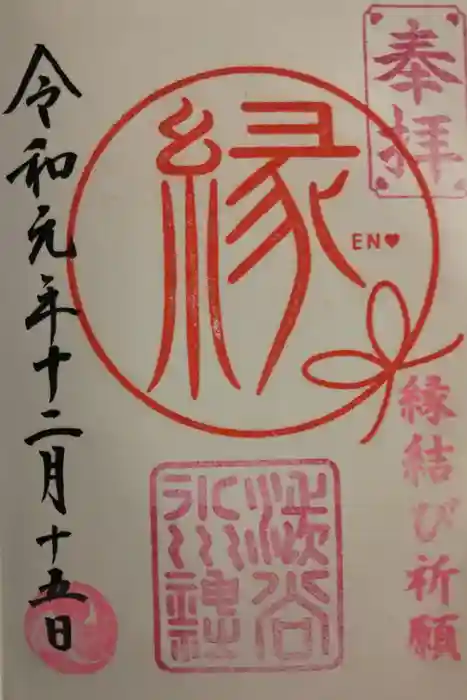 奉拝
縁結び祈願
縁
EN♥
渋谷
氷川神社
令和元年十二月十五日